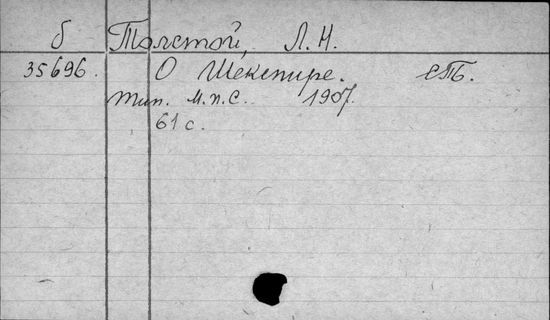 б Толстой, Л. Н.
35696. О Шекспире. СПб.
Тип. М.п.С. 1907.
61 с.